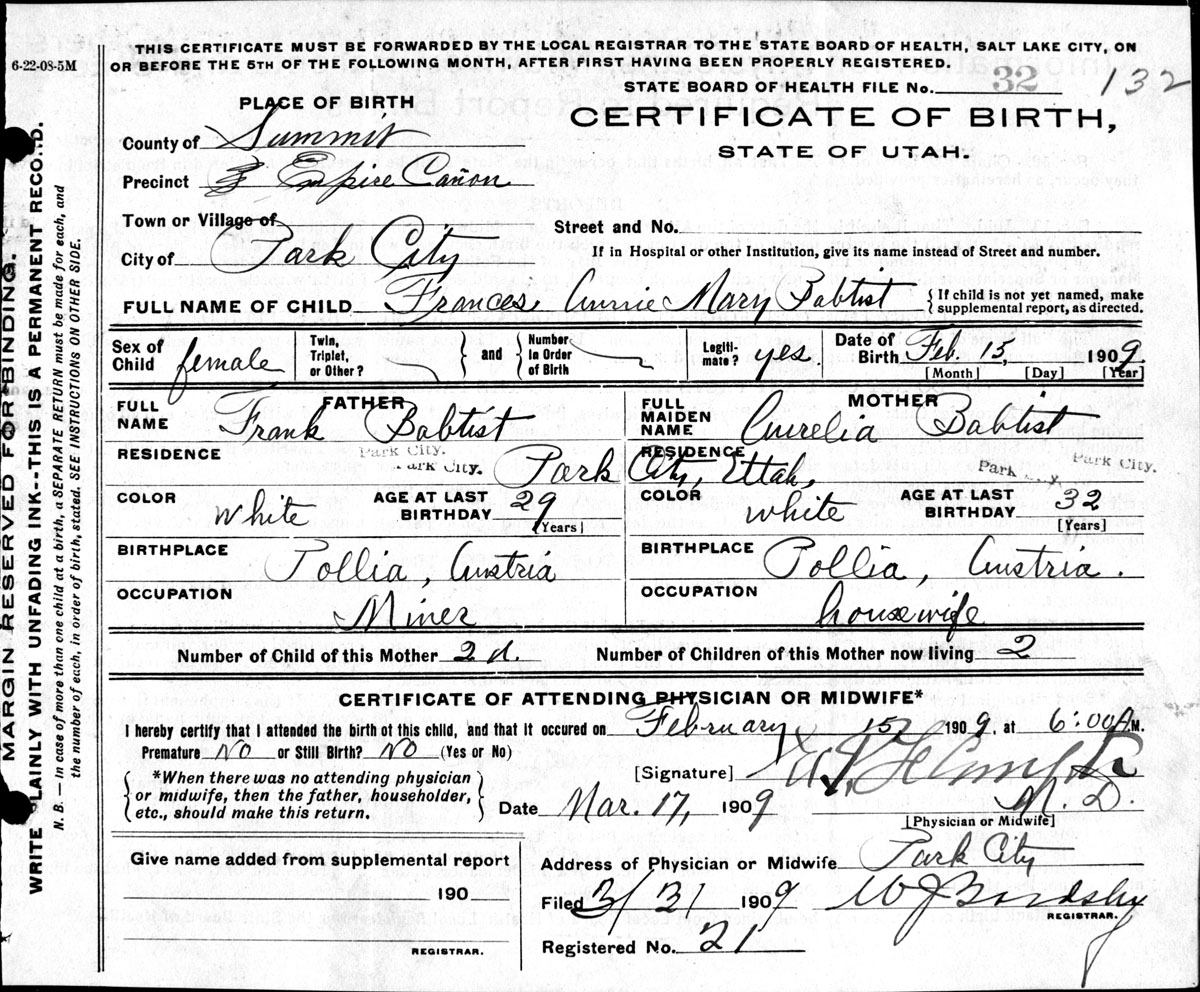 THIS CERTIFICATE MUST BE FORWARDED BY THE LOCAL REGISTRAR TO THE STATE BOARD OF HEALTH, SALT LAKE CITY, ON
6-22-08-5M
OR BEFORE THE 5TH OF THE FOLLOWING MONTH, AFTER FIRST HAVING BEEN PROPERLY REGISTERED.
STATE BOARD OF HEALTH FILE No. 32 132
PLACE OF BIRTH
CERTIFICATE OF BIRTH,
STATE OF UTAH.
County of Summit
Precinct Empire Cañon
Town or Village of
Street and No.
City of Park City
If in Hospital or other Institution, give its name instead of Street and number.
FULL NAME OF CHILD Frances Annie Mary Babtist
{If child is not yet named, make
supplemental report, as directed.
Sex of Child female
Twin, Triplet, or Other? } and { Number in Order of Birth
Legitimate? yes.
Date of Birth Feb. 15, 1909
[Month] [Day] [Year]
FATHER
FULL NAME Frank Babtist
MOTHER
FULL MAIDEN NAME Aurelia Babtist
RESIDENCE Park City.
Park City.
RESIDENCE
Park City, Uttah,
Park
Park City.
COLOR white
AGE AT LAST BIRTHDAY 29 [Years]
COLOR white
AGE AT LAST BIRTHDAY 32 [Years]
BIRTHPLACE Pollia, Austria
BIRTHPLACE Pollia, Austria.
OCCUPATION Miner
OCCUPATION housewife
Number of Child of this Mother 2d. Number of Children of this Mother now living 2
CERTIFICATE OF ATTENDING PHYSICIAN OR MIDWIFE*
I hereby certify that I attended the birth of this child, and that it occured on February 15, 1909, at 6:00 A M.
Premature No or Still Birth? No (Yes or No)
*When there was no attending physician
or midwife, then the father, householder,
etc., should make this return.
[Signature]
M. D.
Date Mar. 17, 1909
[Physician or Midwife]
Give name added from supplemental report
190
REGISTRAR.
Address of Physician or Midwife Park City
Filed 3/31 1909 W J Bardsley
REGISTRAR.
Registered No. 21
MARGIN RESERVED FOR BINDING.
WRITE PLAINLY WITH UNFADING INK--THIS IS A PERMANENT RECORD.
N. B. — In case of more than one child at a birth, a SEPARATE RETURN must be made for each, and
the number of each, in order of birth, stated. SEE INSTRUCTIONS ON OTHER SIDE.